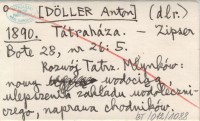 [DÖLLER Anton] (dłr.)
1890. Tátraháza. – Zipser
Bote 28, nr 26: 5.
Rozwój Tatrz. Młynków:
nowy wodociąg,
ulepszenia zakładu wodoleczni-
czego, naprawa chodników.